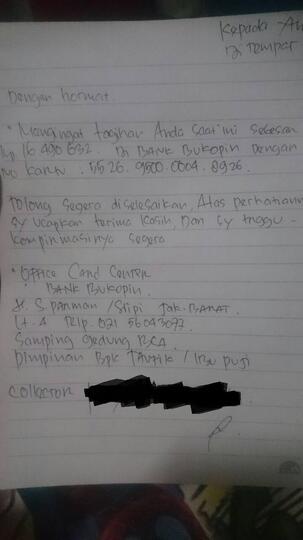 Kepada
Di Tempat
Dengan hormat.
"Mengingat tagihan Anda saat ini sebesar
Rp 16 490 632. Di BANK Bukopin Dengan
No Kartu. 5526. 9500. 0004. 8926.
Tolong segera diselesaikan, Atas perhatiann
sy ucapkan terima kasih, Dan sy tunggu -
kompirmasinya segera
"OFFice Card Center
BANK Bukopin.
Jl. S. Parman / Slipi Jak. BARAT.
Lt. 4 Tlp. 021 56043077
Samping Gedung BCA
Pimpinan Bpk Taupik / Ibu puji
Collector